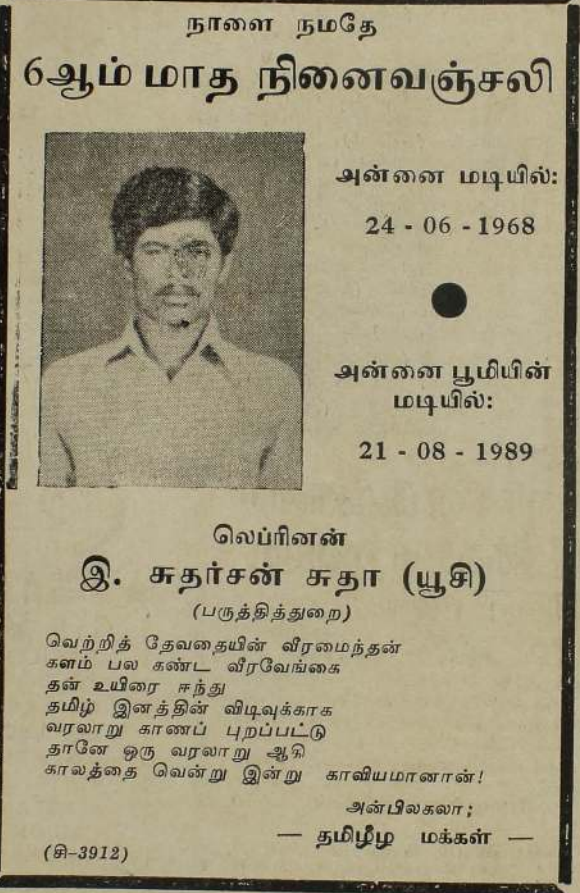 நாளை நமதே
6ஆம் மாத நினைவஞ்சலி
அன்னை மடியில்:
24 - 06 - 1968
அன்னை பூமியின்
மடியில்:
21 - 08 - 1989
லெப்ரினன்
இ. சுதர்சன் சுதா (யூசி)
(பருத்தித்துறை)
வெற்றித் தேவதையின் வீரமைந்தன்
களம் பல கண்ட வீரவேங்கை
தன் உயிரை ஈந்து
தமிழ் இனத்தின் விடிவுக்காக
வரலாறு காணப் புறப்பட்டு
தானே ஒரு வரலாறு ஆகி
காலத்தை வென்று இன்று காவியமானான்!
அன்பிலகலா;
— தமிழீழ மக்கள் —
(சி-3912)